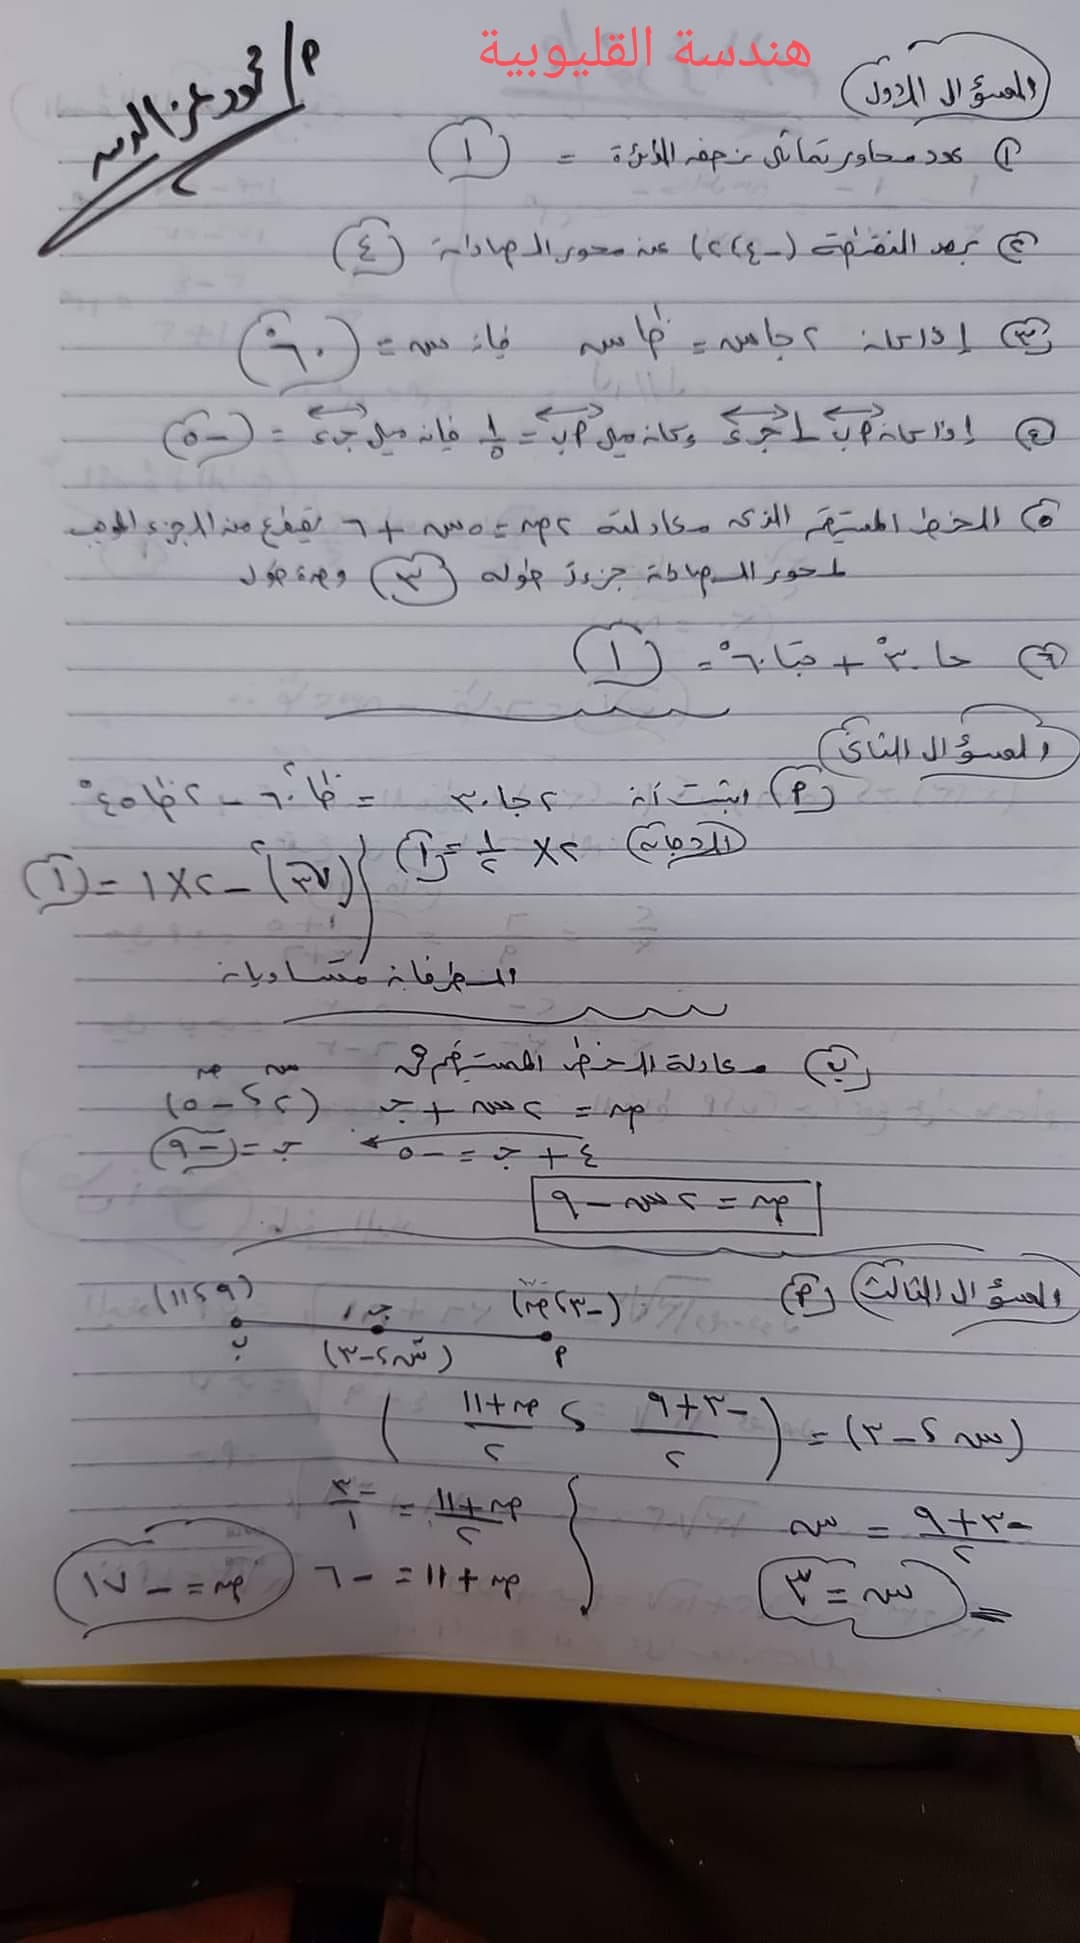 هندسة القليوبية
م/ محمود عز الدين
السؤال الأول
① عدد محاور تماثل نصف الدائرة = (١)
② بعد النقطة (-٤، ٢) عن محور الصادات (٤)
③ إذا كان ٢ جا س = ظا س فإن س = (٦٠°)
④ إذا كان أب ⊥ جـ د وكان ميل أب = ١/٥ فإن ميل جـ د = (-٥)
⑤ الخط المستقيم الذى معادلته ٢ص = ٥س + ٦ يقطع من الجزء الموجب
لمحور الصادات جزءا طوله (٣) وحدة طول
⑥ حا ٣٠° + حتا ٦٠° = (١)
السؤال الثانى
(أ) اثبت أن ٢ جا ٣٠ = ظا² ٦٠ - ٢ ظا ٤٥°
الإجابة ٢ × ١/٢ = (١) (√٣)² - ٢ × ١ = (١)
الطرفان متساويان
(ب) معادلة الخط المستقيم هى
س ص
ص = ٢س + جـ (٢، -٥)
٤ + جـ = -٥ جـ = (-٩)
ص = ٢س - ٩
السؤال الثالث (أ)
(-٣، ص) (٩، ١١)
أ جـ ب
(س، -٣)
(س، -٣) = (-٣+٩/٢ ، ص+١١/٢)
-٣+٩/٢ = س ص+١١/٢ = -٣/١
س = ٣ ص + ١١ = -٦ ص = -١٧